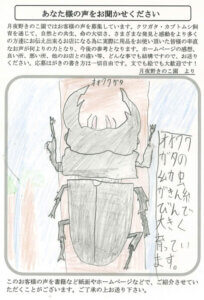 あなた様の声をお聞かせください
月夜野きのこ園ではお客様の声を募集しています。クワガタ・カブトムシ飼
育を通じて、自然との共生、命の大切さ、さまざまな発見と感動をより多く
の方達にお伝え出来るお店になる為に実際に用品をお使い頂いた皆様の率直
なお声が何よりの力となり、今後の参考となります。ホームページの感想、
良い所、悪い所、他のお店との違い等、どんな事でも結構ですので、お送り
ください。応募はがきの書き方は一切自由です。文でも絵でも大歓迎です！
月夜野きのこ園 より
オオクワガタ
オオクワ
ガタの
幼虫
がきん糸
びんで
大きく
育ってい
ます。
このお客様の声を書籍など紙面やホームページなどで、ご紹介させていた
だくことがございます。ご了承の上お送り下さい。